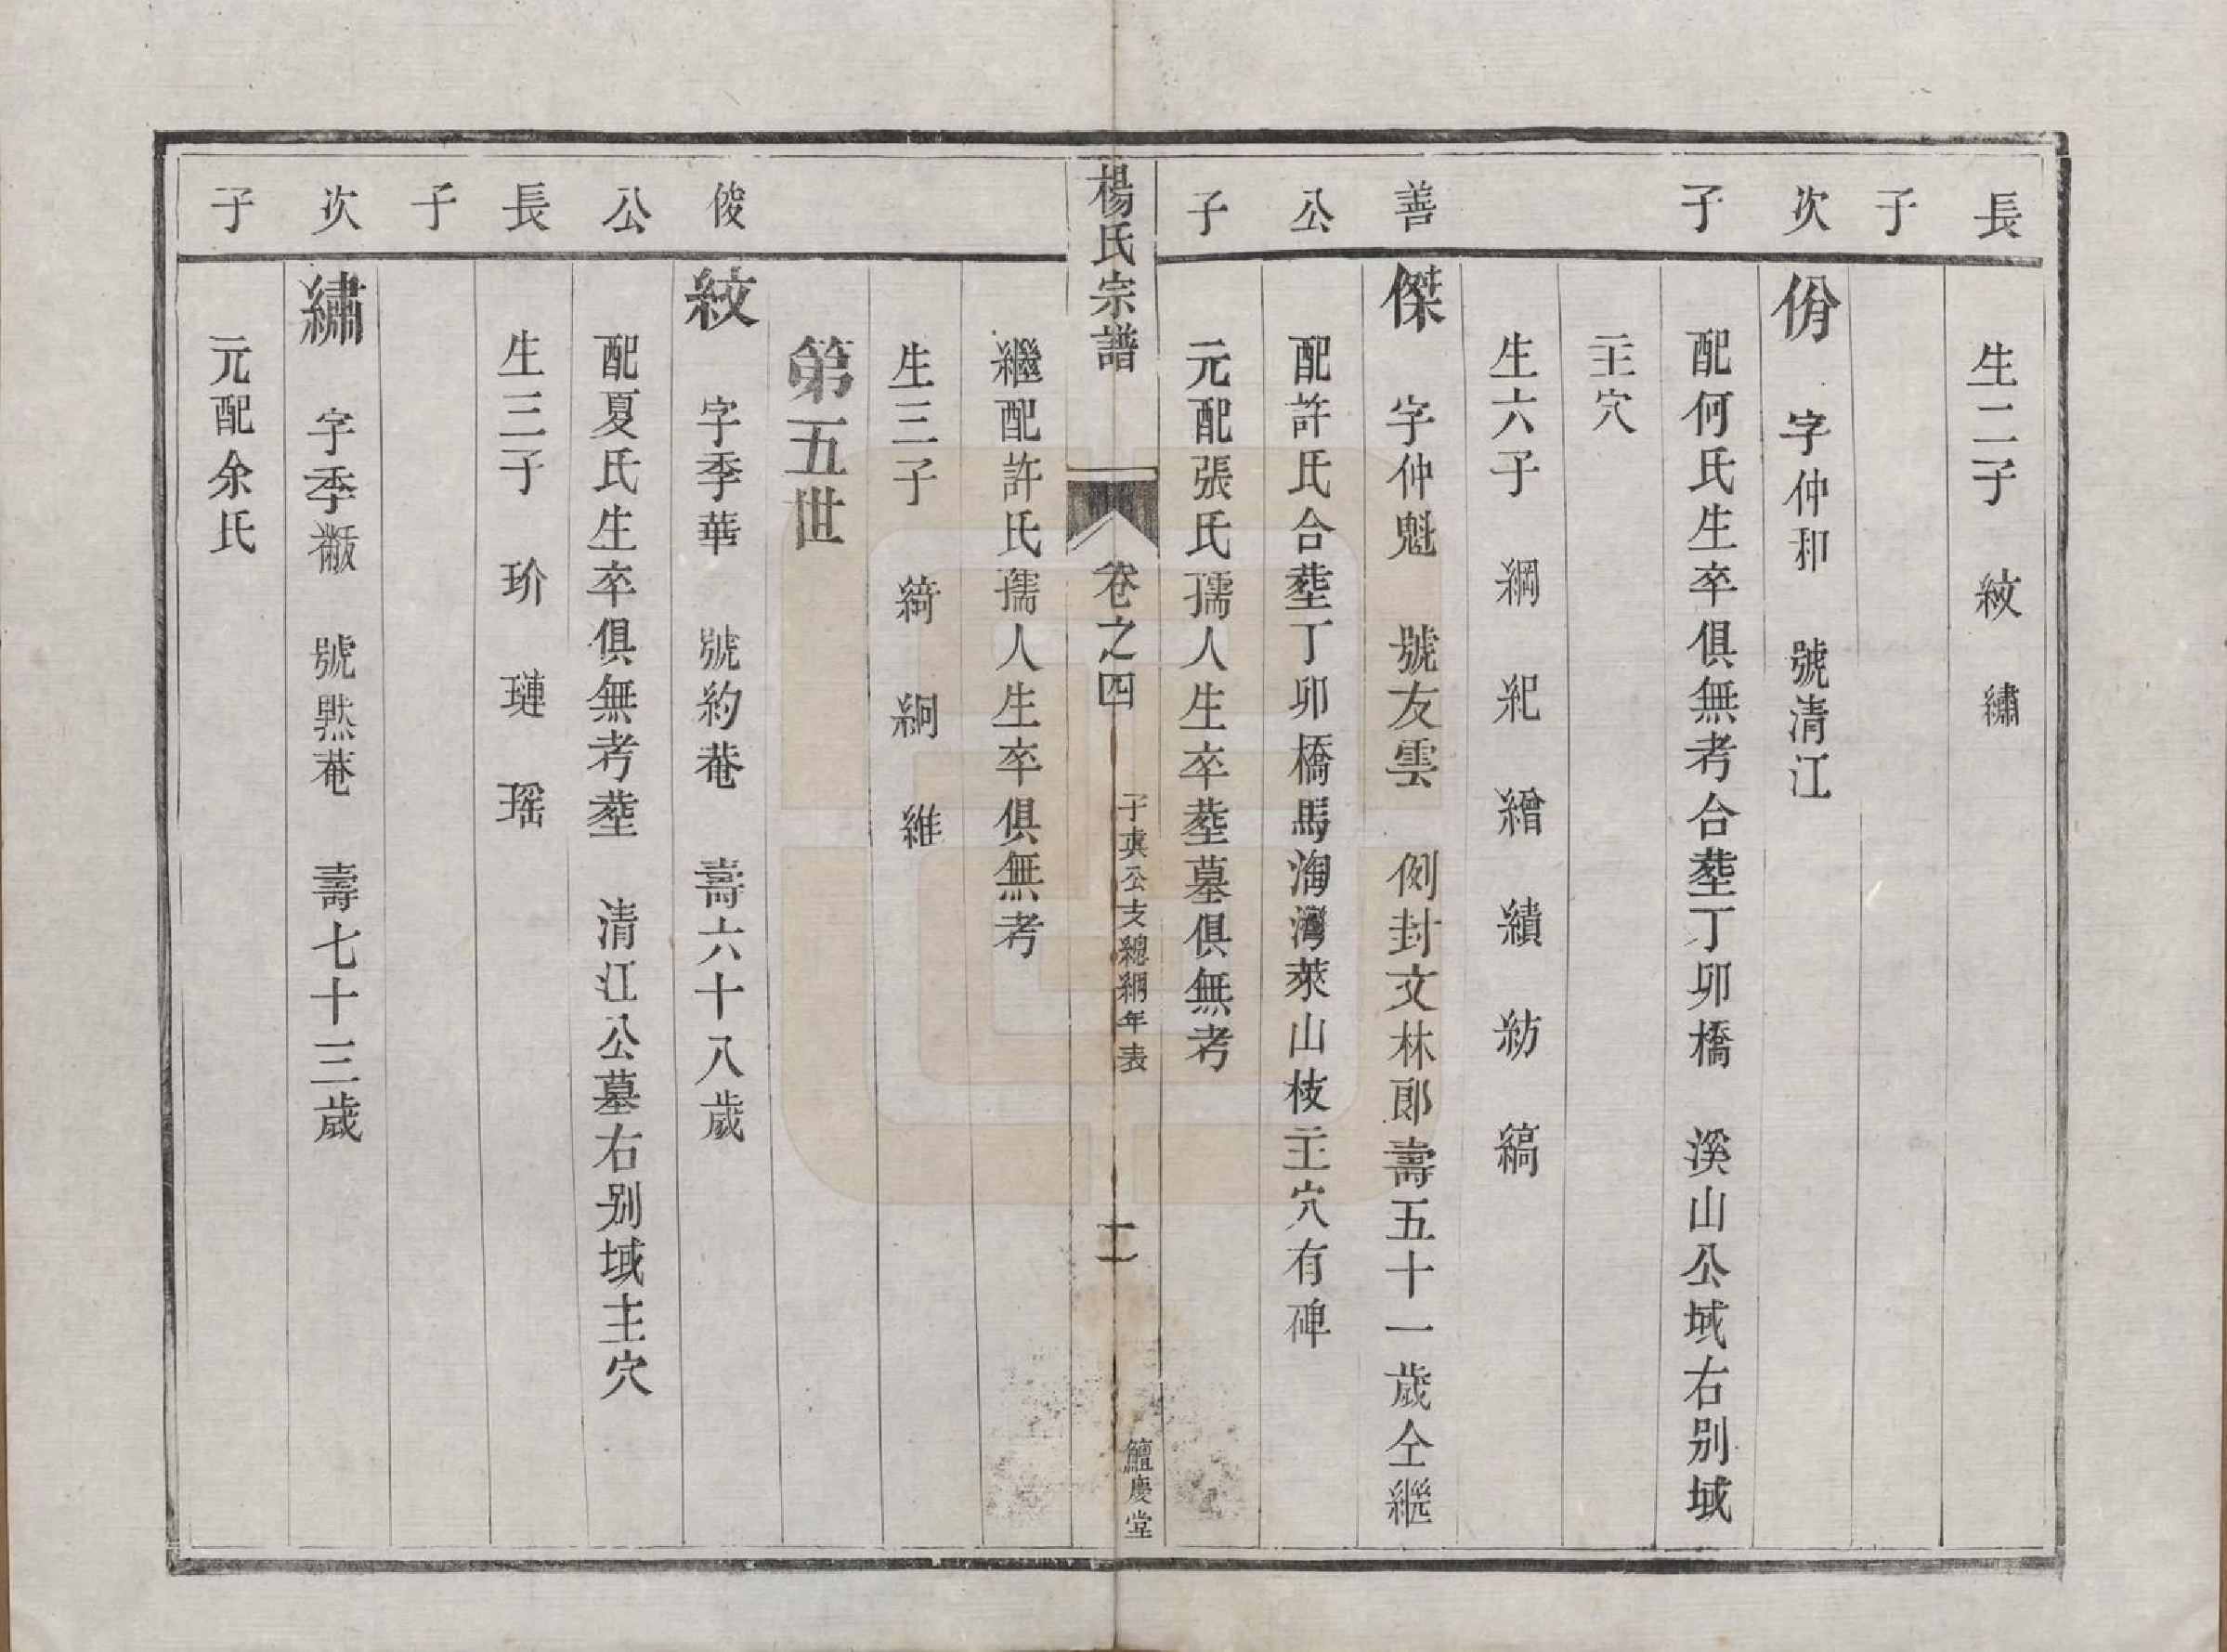 長
生二子　紋　繡
子
次
俏　字仲和　號清江
子
配何氏生卒俱無考合塟丁卯橋　溪山公域右別域
主穴
生六子　綱　紀　繒　績　紡　縞
善
傑　字仲魁　號友雲　例封文林郎壽五十一歲仝継
公
配許氏合塟丁卯橋馬淘灣萊山枝主穴有碑
子
元配張氏孺人生卒塟墓俱無考
楊氏宗譜　卷之四　子真公支總綱年表　二　鱣慶堂
繼配許氏孺人生卒俱無考
生三子　綺　絅　維
第五世
俊
紋　字季華　號約菴　壽六十八歲
公
配夏氏生卒俱無考塟　清江公墓右別域主穴
長
生三子　玠　璉　瑶
子
次
繡　字季黻　號㷱菴　壽七十三歲
子
元配余氏